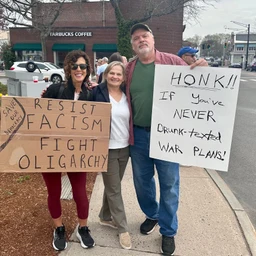 STARBUCKS COFFEE
RESIST
FASCISM
FIGHT
OLIGARCHY
HONK!!
If You've
NEVER
Drunk-texted
WAR PLANS!